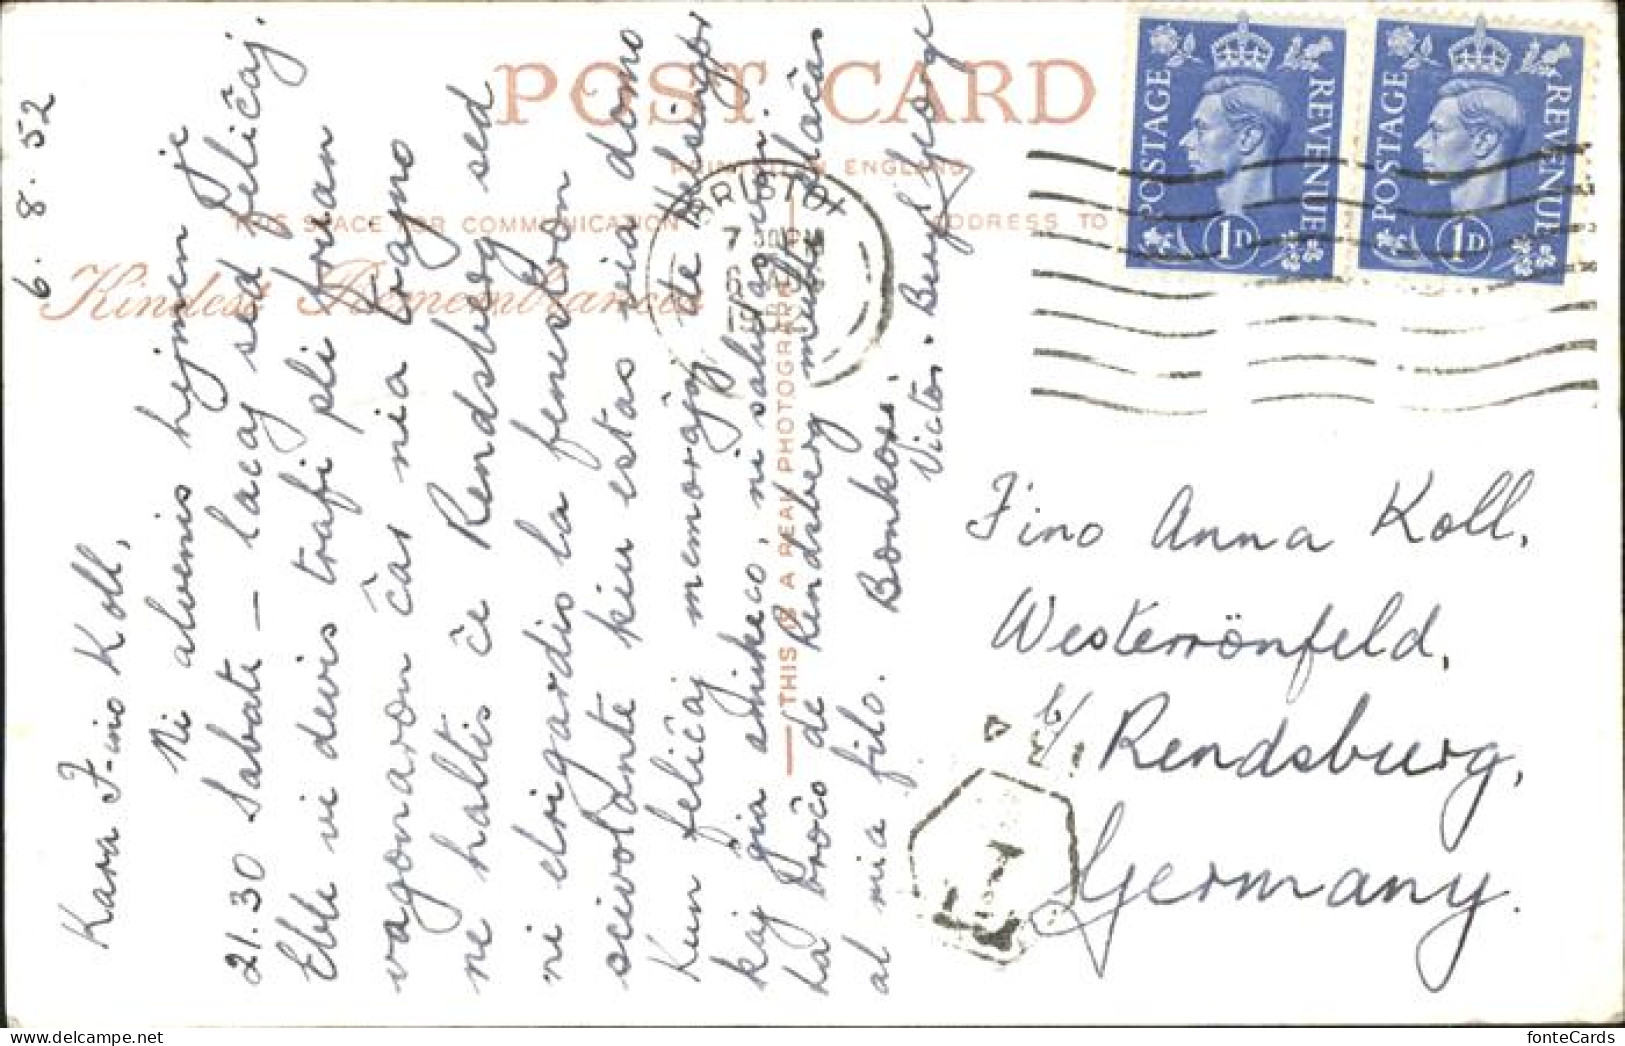 POST CARD
PRINTED IN ENGLAND
THIS SPACE FOR COMMUNICATION
ADDRESS TO
Kindest Remembrances
THIS IS A REAL PHOTOGRAPH
6.8.52
Kara F-ino Koll,
Ni alvenis hejmen je
21.30 Sabate – lacaj sed feliĉaj.
Eble ni devis trafi pli frian
vagonaron ĉar nia trajno
ne haltis ĉe Rendsberg sed
ni elrigardis la fenestron
scivolante kiu estas via domo
Kun feliĉaj memoraĵoj de Helsingør
kaj ĝia amikeco, ni salutas vin.
La broĉo de Rendsberg multe plaĉas
al mia filo. Bonkore,
Victor. Beryl George
Fino Anna Koll,
Westerrönfeld,
Rendsburg,
Germany.
T
BRISTOL
7 30 PM
POSTAGE REVENUE
1D
POSTAGE REVENUE
1D
fonteCards